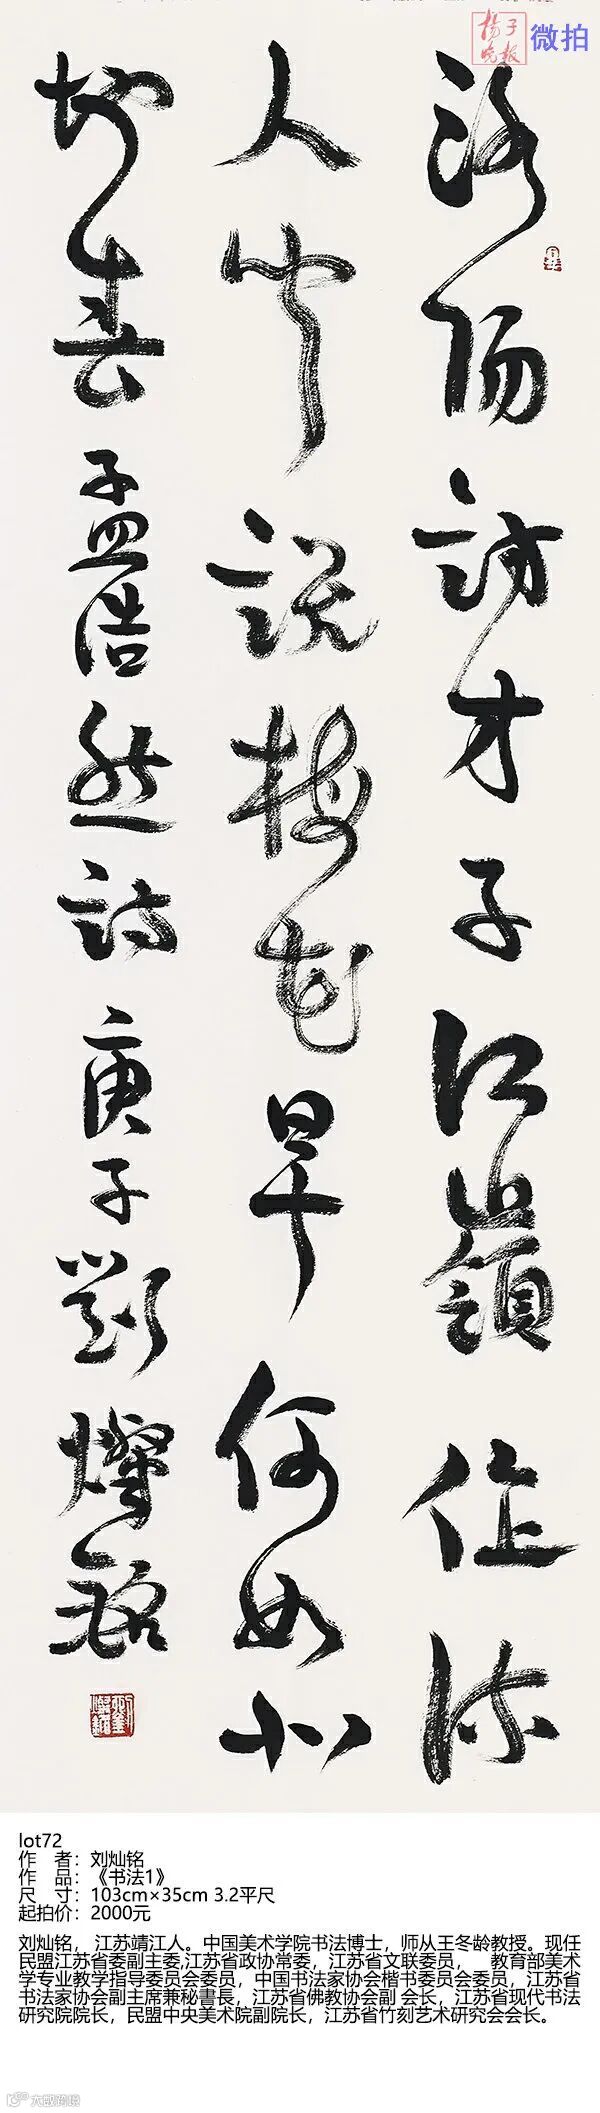 揚子晚报
微拍
洛陽訪才子江嶺作流
人聞說梅花早何如北
地春孟浩然詩庚子劉燦銘
lot72
作 者：刘灿铭
作 品：《书法1》
尺 寸：103cm×35cm 3.2平尺
起拍价：2000元
刘灿铭，江苏靖江人。中国美术学院书法博士，师从王冬龄教授。现任
民盟江苏省委副主委,江苏省政协常委，江苏省文联委员， 教育部美术
学专业教学指导委员会委员，中国书法家协会楷书委员会委员，江苏省
书法家协会副主席兼秘書長，江苏省佛教协会副 会长，江苏省现代书法
研究院院长，民盟中央美术院副院长，江苏省竹刻艺术研究会会长。
大数跨境